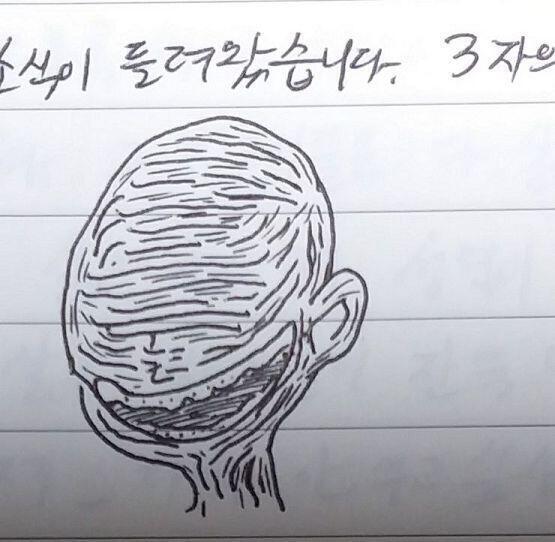 소식이 들려왔습니다. 3자의